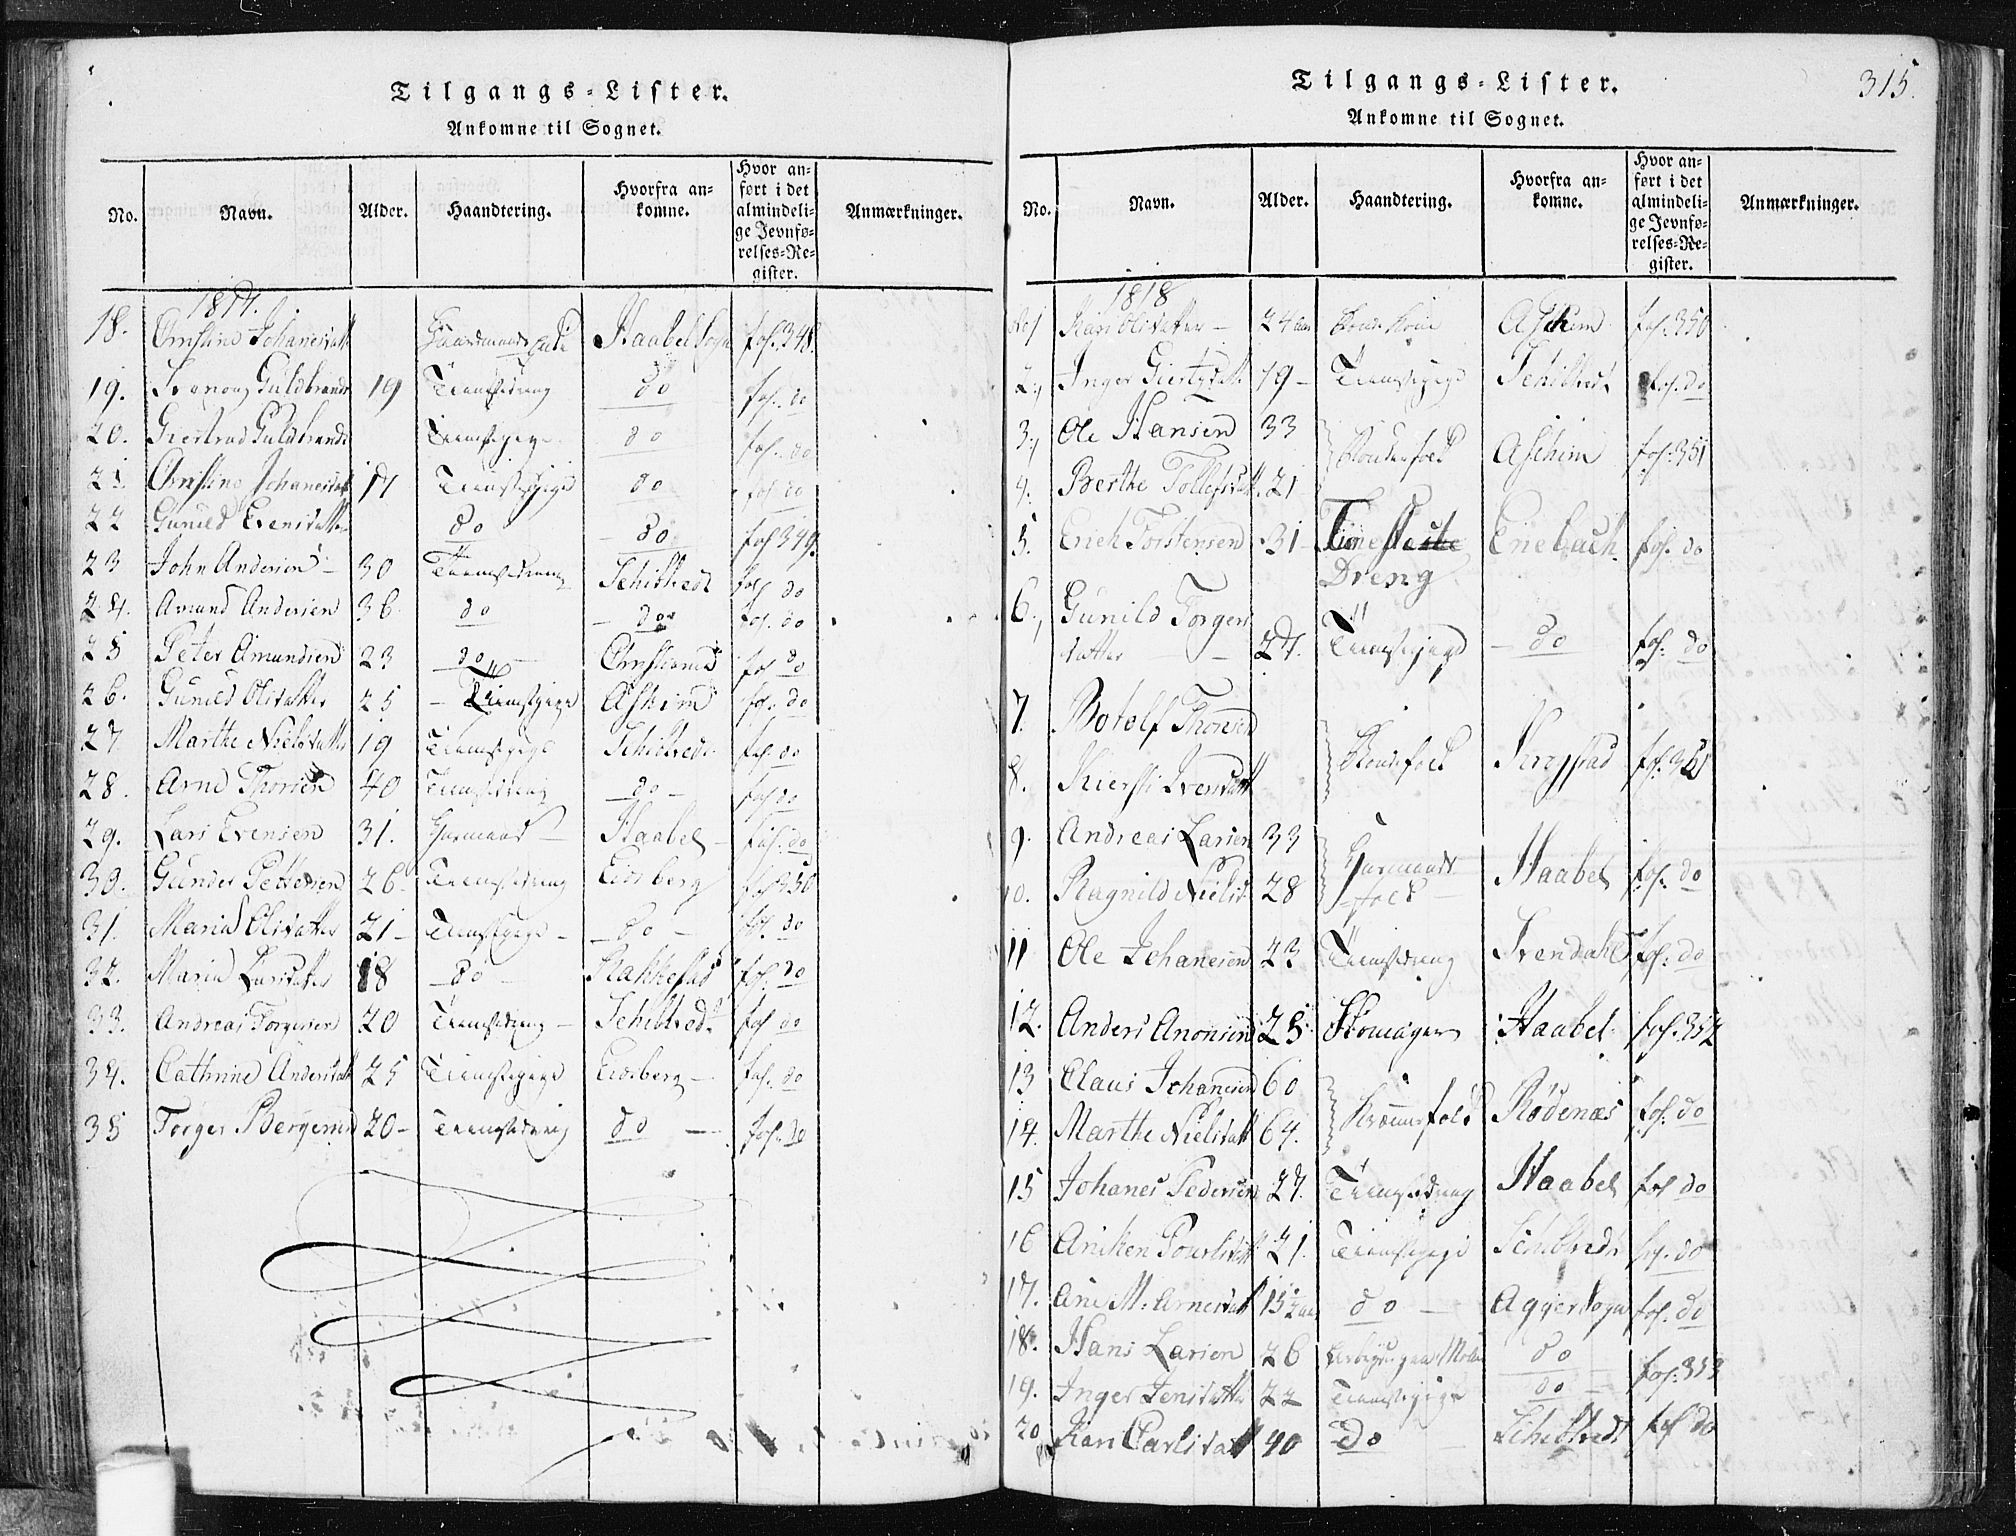 Tilgangs-Lister.
Ankomne til Sognet.
No. Navn. Alder. Haandtering. Hvorfra ankomne. Hvor anført i det almindelige Jevnførelses-Register. Anmærkninger.
1817.
18. Christine Johanesdatt Haabel Sogn fol. 348.
19. Guldbrands 19 Tienestedreng do fol. do
20. Giertrud Guldbrands Tienestepige do fol. do
21. Christine Johanesdatt 17 Tienestepige do fol. do
22 Gunild Evensdatter do do fol 349.
23 John Andersen 30 Tienestedreng Schibtvedt fol do
24. Amund Andersen 36. do do fol. do
25 Peter Amundsen 23 do fol do
26. Gunild Olsdatter 25 Tienestepige Askim fol. do
27 Marthe Nielsdatter 19 Tienestepige Schibtvedt fol. do
28. Arne Thorsen 40 Tienestedreng do fol do
29. Lars Evensen 31. Haabel fol. do
30. Gunder Pettersen 26 Tienestedreng Eidsberg fol 350
31. Maria Olsdatter 21 Tienestepige do fol. do
32. Maria Larsdatter 18 do Rakkestad fol. do
33. Andreas Torgersen 20 Tienestedreng Schibtvedt fol do
34. Cathrine Andersdatt 25 Tienestepige Eidsberg fol. do
35 Torger Bergersen 20 Tienestedreng do fol. do
315.
Tilgangs-Lister.
Ankomne til Sognet.
No. Navn. Alder. Haandtering. Hvorfra ankomne. Hvor anført i det almindelige Jevnførelses-Register. Anmærkninger.
1818
No 1 Kari Olsdatter 24 Aar Bonde Kone Aschim fol. 350
2, Inger Giertsdatt 19 Tienestepige Schibtvedt fol. do
3, Ole Hansen 33 Bondefolk Aschim fol. 351
4. Berthe Tollefsdatt 21
5. Erich Torstensen 31 Tieneste Enebach fol. do
Dreng
6, Gunild Torgers
datter 27. Tienestepige do fol. do
7. Botolf Thorsen Bondefolk fol. 351
8. Kiersti Iversdatt
9. Andreas Larsen 33 Haabel fol. do
10. Ragnild Nielsd 28 folk
11 Ole Johanesen 23 Tienestedreng Svendahl fol. do
12. Anders Anonsen 25 Skomager Haabel fol. 352
13 Claus Johanesen 60 Rødenæs fol. do
14. Marthe Nielsdatt 64.
15 Johanes Pedersen 27. Tienestedreng Haabel fol do
16 Aniken Poulsdatt 21. Tienestepige Schibtvedt fol. do
17. Ane M. Arnesdatt 15 1/2 Aar do Agger Sogn fol. do
18. Hans Larsen 26 do fol. 353
19. Inger Jensdatter 22 Tienestepige do
20 Kari Carlsdatt 40 do Schibtvedt fol do